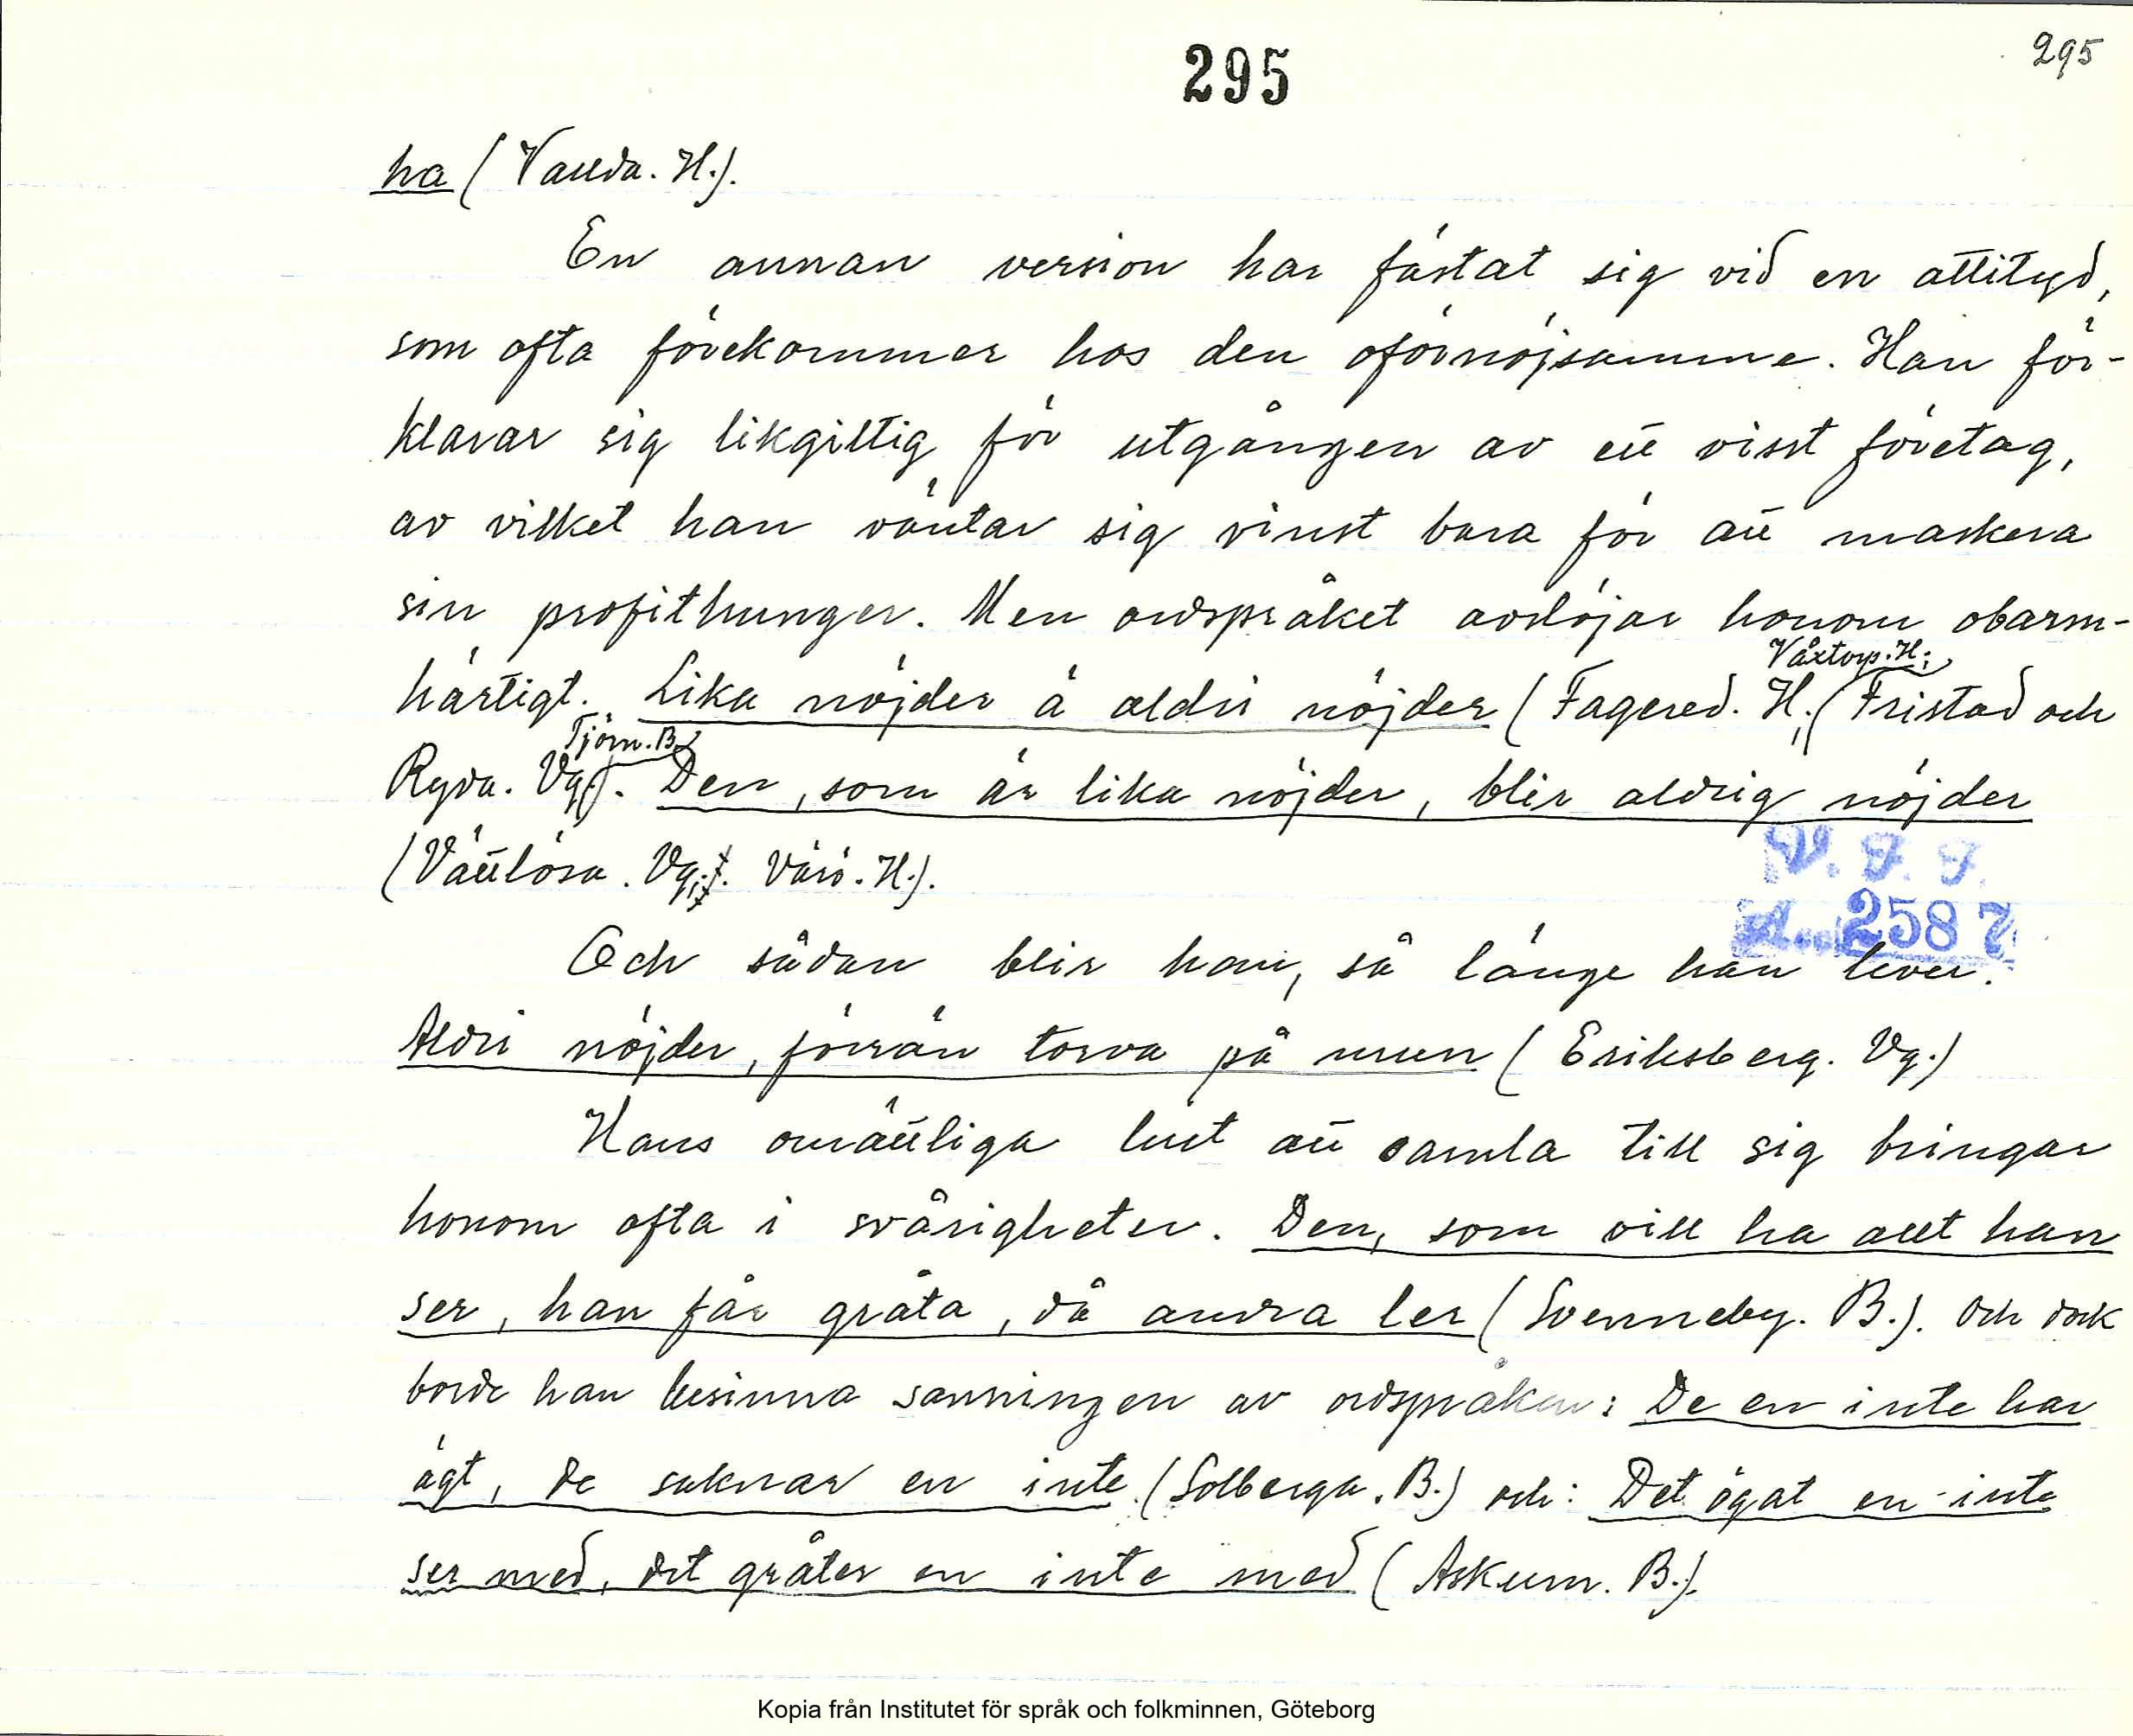 295
295
ha (Vallda. H.).
En annan version har fästat sig vid en attityd,
som ofta förekommer hos den oförnöjsamme. Han för-
klarar sig likgiltig för utgången av ett visst företag,
av vilket han väntar sig vinst bara för att maskera
sin profithunger. Men ordspråket avslöjar honom obarm-
Våxtorp. H;
härtigt. Lika nöjder ä aldri nöjder (Fagered. H; Fristad och
Tjörn. B.
Ryda. Vg.). Den, som är lika nöjder, blir aldrig nöjder
(Vättlösa. Vg; Värö. H.).
V. F. F.
Acc 2587
Och sådan blir han, så länge han lever.
Aldri nöjder, förrän torva på mun (Eriksberg. Vg.)
Hans omättliga lust att samla till sig bringar
honom ofta i svårigheter. Den, som vill ha allt han
ser, han får gråta, då andra ler (Svenneby. B.). Och dock
borde han besinna sanningen av ordspråken: De en inte har
ägt, de saknar en inte (Solberga. B.) och: Det ögat en inte
ser med, det gråter en inte med (Askum. B.).
Kopia från Institutet för språk och folkminnen, Göteborg